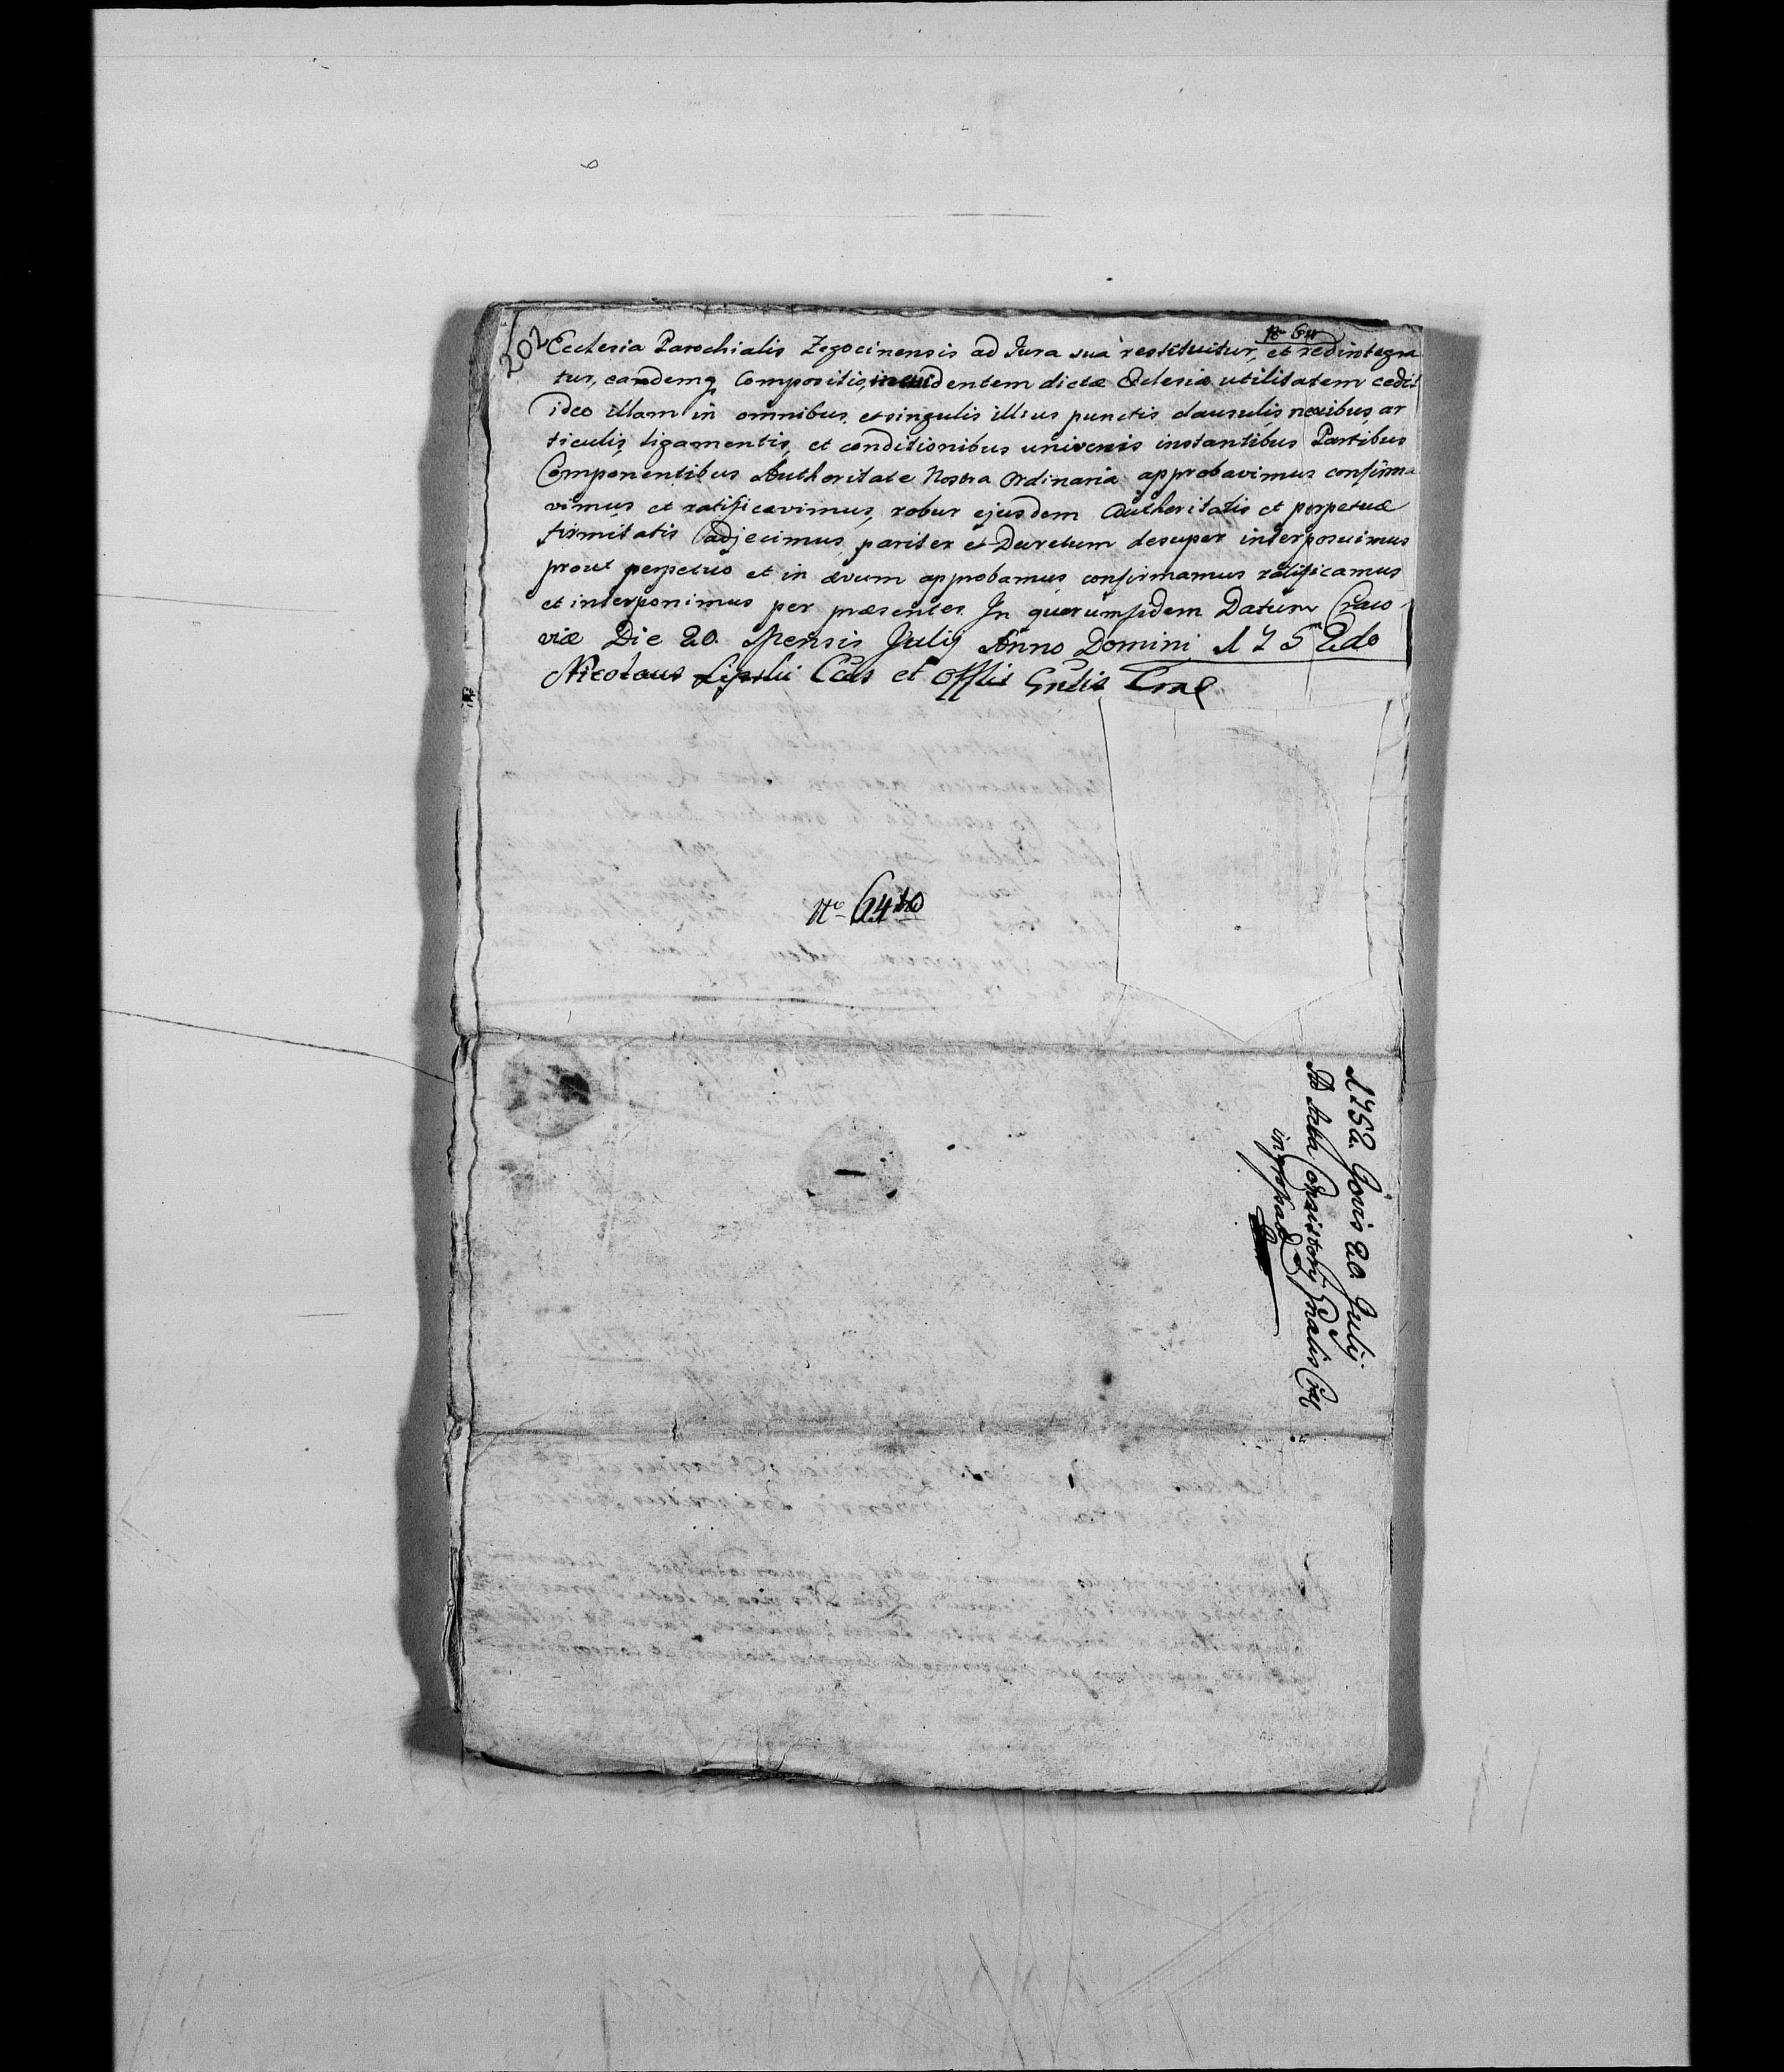 202
No 64
Ecclesia Parochialis Zegocinensis ad Jura sua restituitur, et redintegra
tur, eandemq Compositio, in evidentem dictæ Eclesiæ utilitatem cedit
ideo illam in omnibus et singulis illius punctis clausulis, nexibus, ar
ticulis, ligamentis, et conditionibus universis instantibus Partibus
Componentibus Authoritate Nostra Ordinaria approbavimus confirma
vimus et ratificavimus, robur ejusdem Authoritatis et perpetuæ
firmitatis adjecimus pariter et Decretum desuper interposuimus
prout perpetuo et in ævum approbamus confirmamus ratificamus
et interponimus per præsentes. In quorum fidem Datum Craco
viæ Die 20. Mensis Julij Anno Domini 1752do
Nicolaus Lipski Ccus et Offlis Gnlis Crac
No 64to
1752. Jovis 20 Julij
Ad Acta Consistorij Gnalis Crac
ingrossat